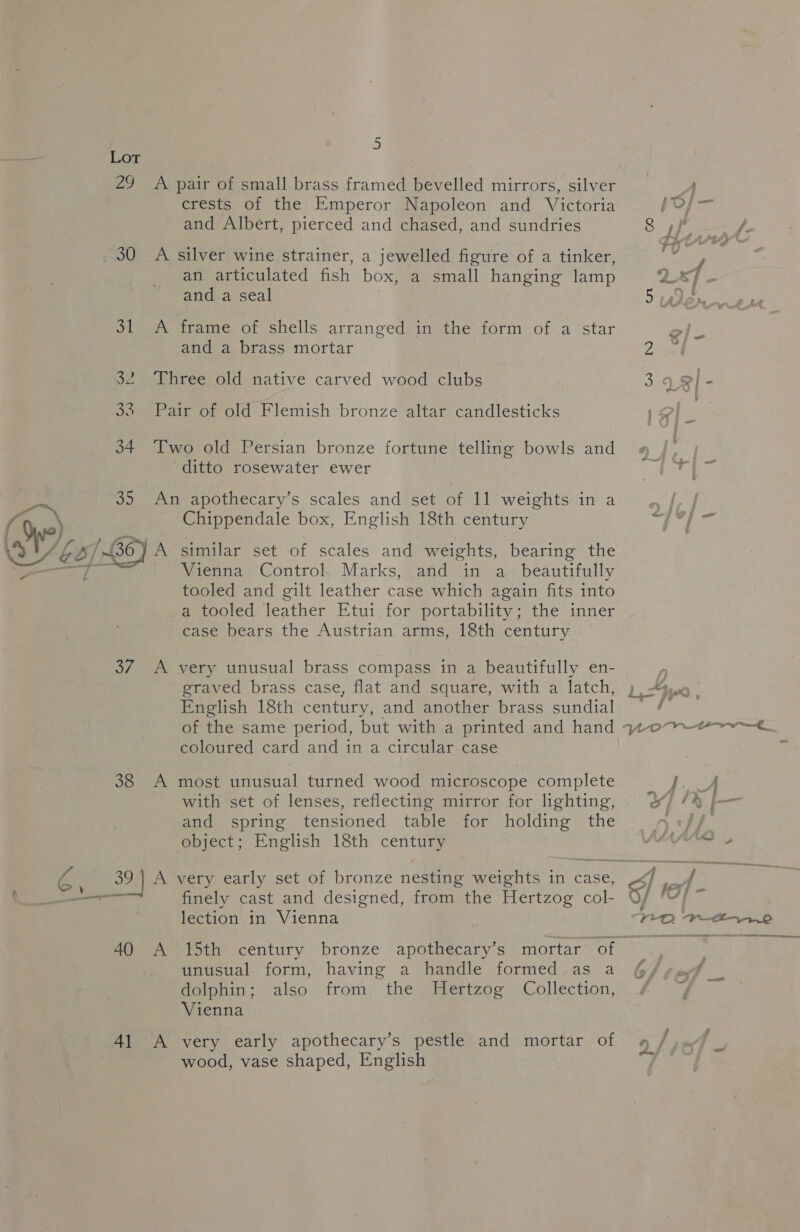 5
Lot
29 A pair of small brass framed bevelled mirrors, silver
crests of the Emperor Napoleon and Victoria 10/-
and Albert, pierced and chased, and sundries 8
30 A silver wine strainer, a jewelled figure of a tinker,
an articulated fish box, a small hanging lamp
and a seal 5
31 A frame of shells arranged in the form of a star
and a brass mortar 2
32 Three old native carved wood clubs 3
33 Pair of old Flemish bronze altar candlesticks
34 Two old Persian bronze fortune telling bowls and
ditto rosewater ewer
35 An apothecary's scales and set of 11 weights in a
Chippendale box, English 18th century
36 A similar set of scales and weights, bearing the
Vienna Control Marks, and in a beautifully
tooled and gilt leather case which again fits into
a tooled leather Etui for portability; the inner
case bears the Austrian arms, 18th century
37 A very unusual brass compass in a beautifully en-
graved brass case, flat and square, with a latch,
English 18th century, and another brass sundial
of the same period, but with a printed and hand
coloured card and in a circular case
38 A most unusual turned wood microscope complete
with set of lenses, reflecting mirror for lighting,
and spring tensioned table for holding the
object; English 18th century
39 A very early set of bronze nesting weights in case,
finely cast and designed, from the Hertzog col-
lection in Vienna no name
40 A 15th century bronze apothecary's mortar of
unusual form, having a handle formed as a
dolphin; also from the Hertzog Collection,
Vienna
41 A very early apothecary's pestle and mortar of
wood, vase shaped, English